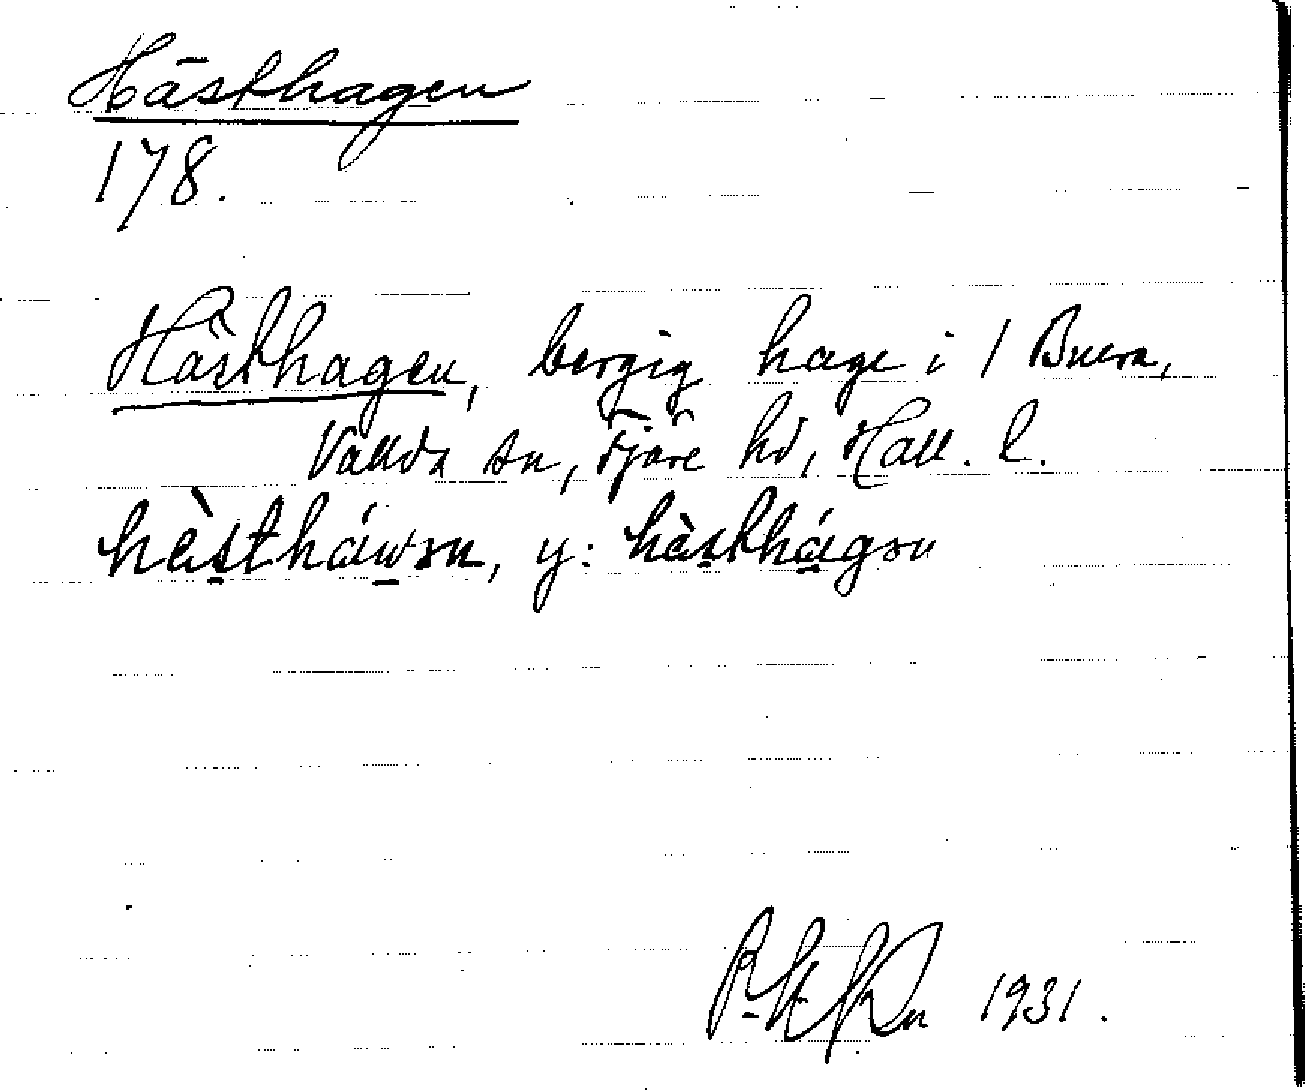 Hästhagen
178.
Hästhagen, bergig hage i 1 Buera,
Vallda sn, Fjäre hd, Hall. l.
hàstháwən, y: hàsthágən
1931.